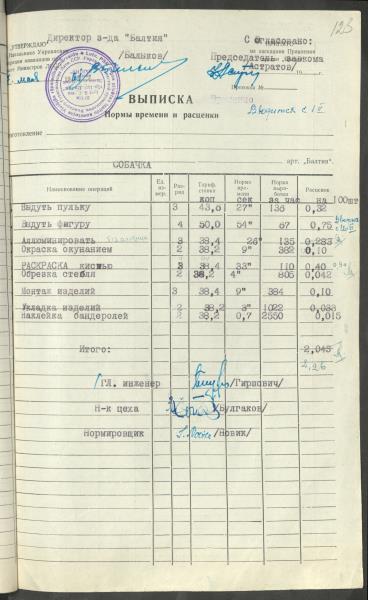 123
Директор з-да "Балтия"
Согласовано:
"УТВЕРЖДАЮ"
/Бальков/
Председатель завкома
/Астратов/
19 г.
мая
ВЫПИСКА
Нормы времени и расценки
Вводится с 1/V
СОБАЧКА
арт. "Балтия".
Наименование операций
Ед. измер.
Разряд
Тариф. ставка коп
Норма времени сек
Норма выработки за час
Расценок на 100шт
Выдуть пульку 3 43,6 27" 136 0,32
Выдуть фигуру 4 50,0 54" 67 0,75
Аллюминировать 3 38,4 26" 135 0,283
Окраска окунанием 2 38,2 9" 382 0,10
РАСКРАСКА кистью 3 38,4 33" 110 0,40
Обрезка стебля 2 38,2 4" 805 0,042
Монтаж изделий 3 38,4 9" 384 0,10
Укладка изделий 2 38,2 3" 1022 0,038
Наклейка бандеролей 2 38,2 0,7 2550 0,015
Итого: 2,045
2,26
Гл. инженер /Гиршович/
Н-к цеха /Булгаков/
Нормировщик /Новик/